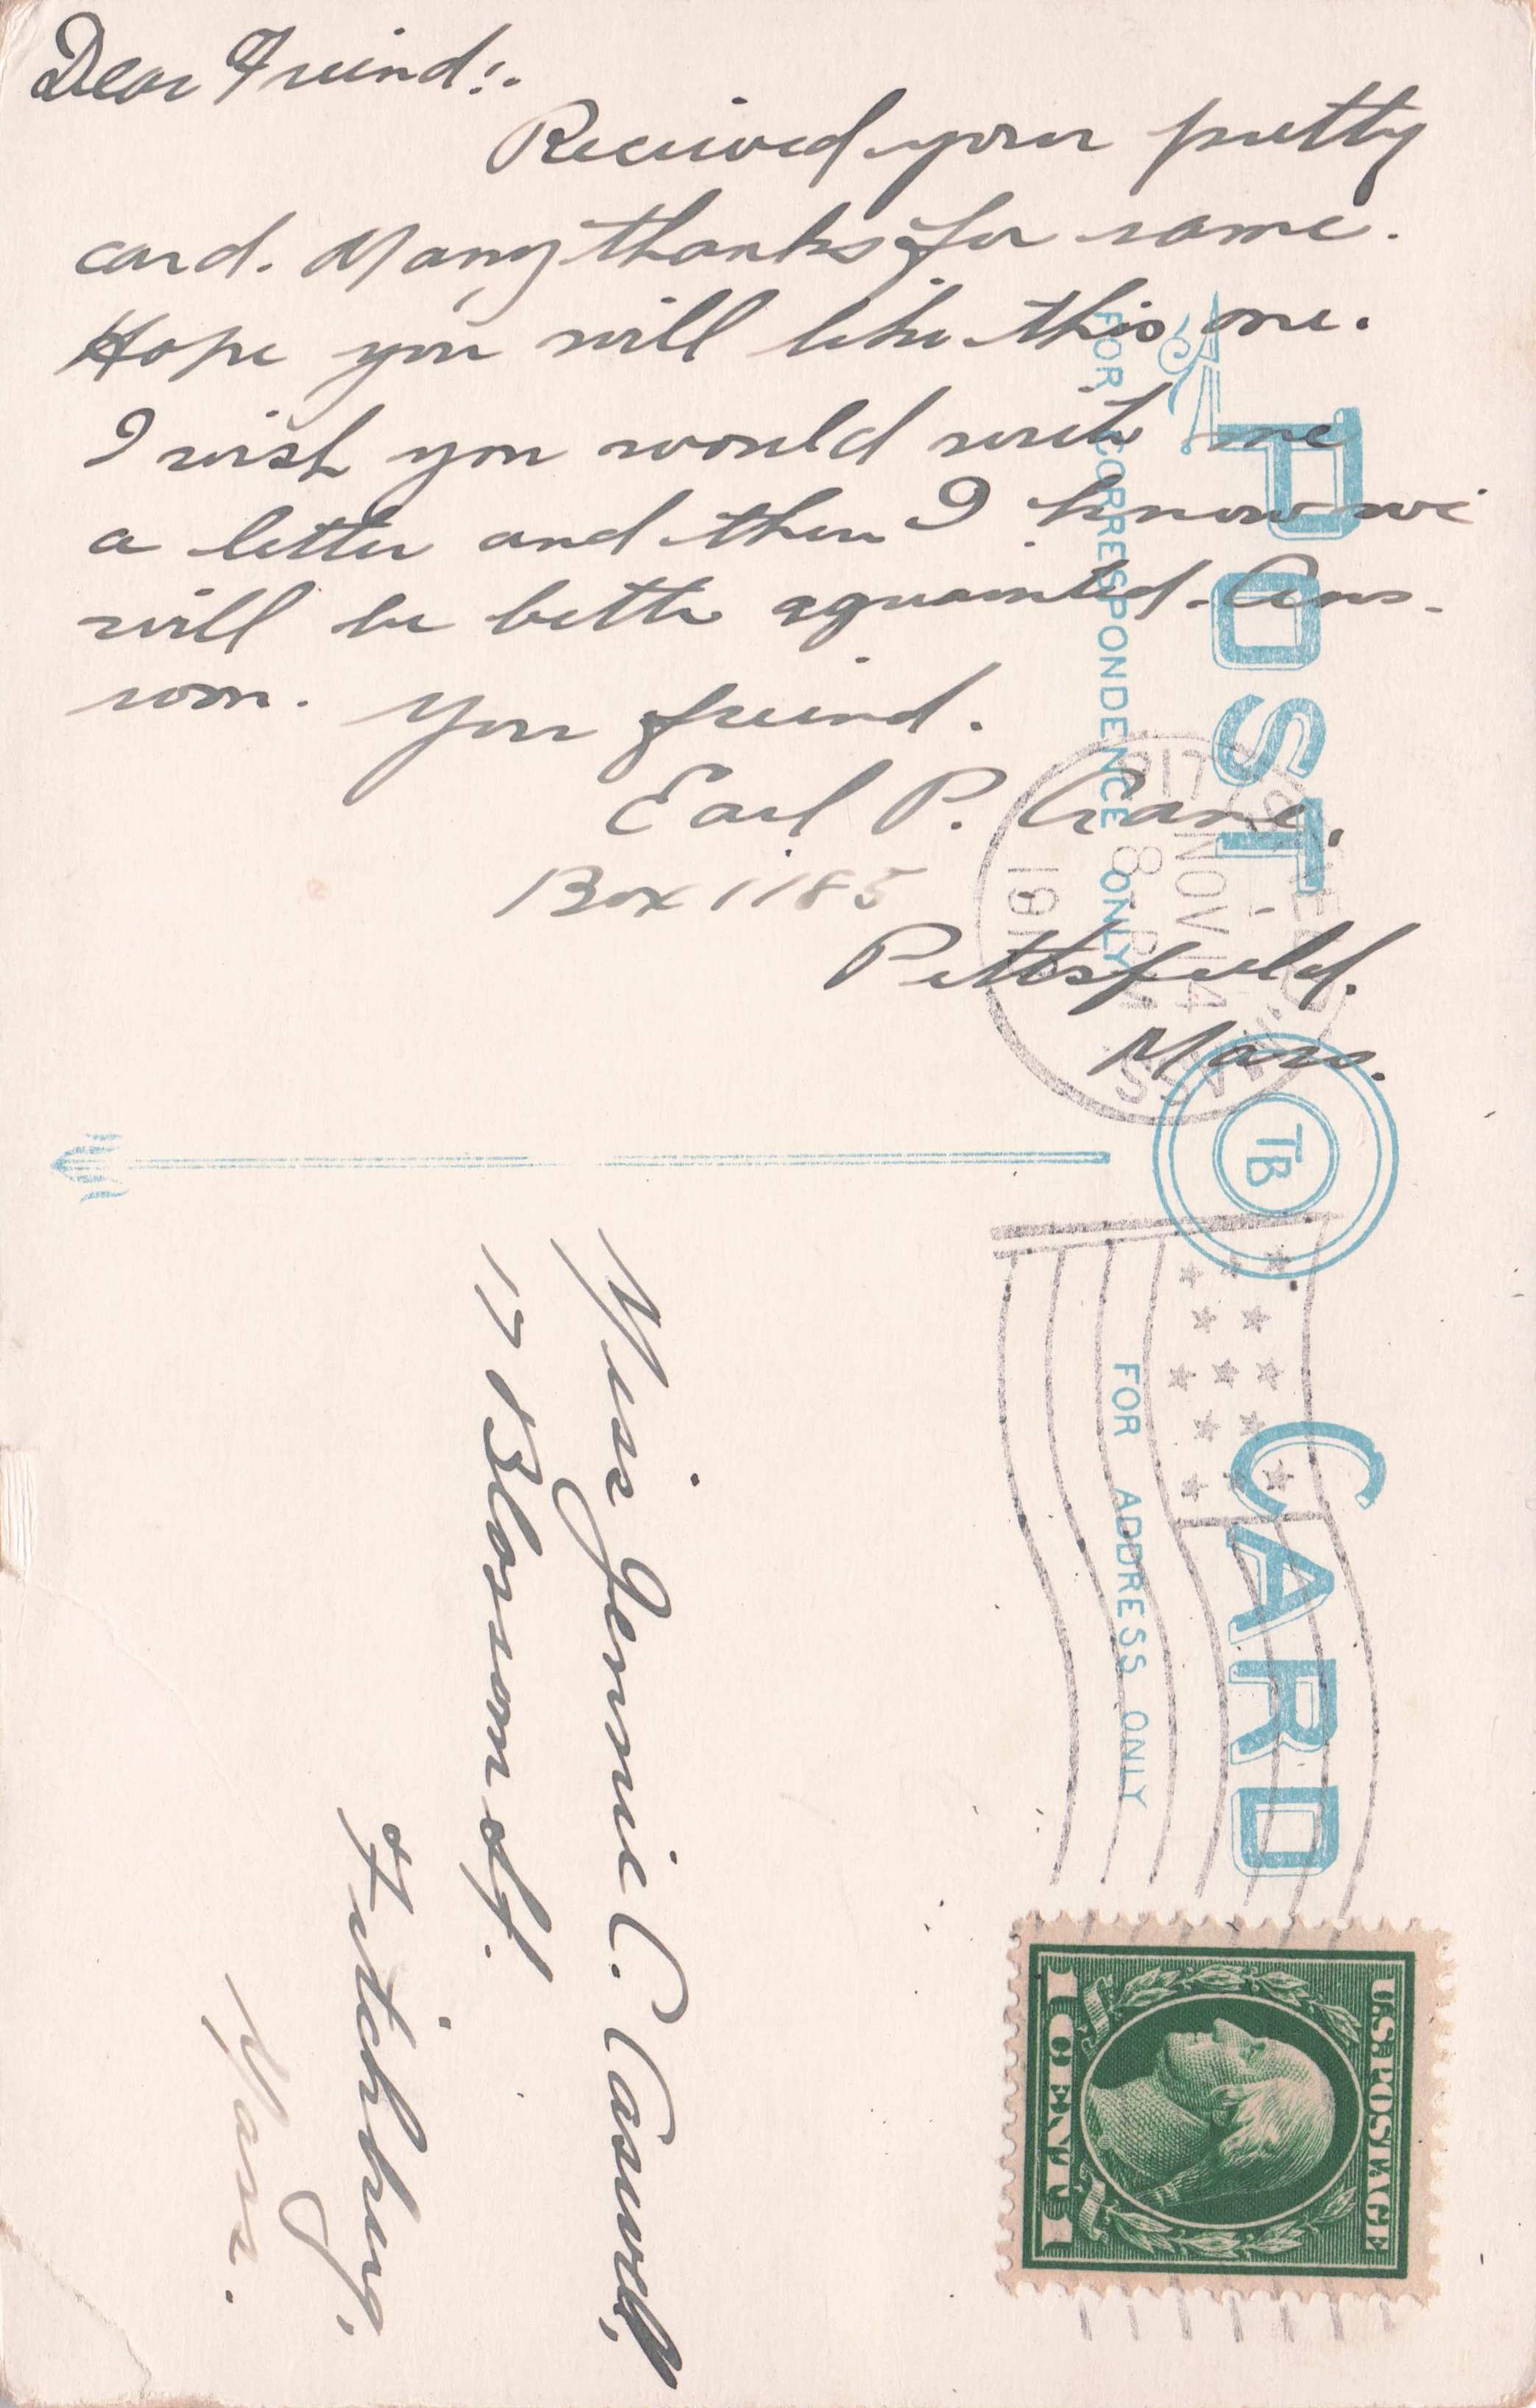 Dear Friend:.
Received your pretty
card. Many thanks for same.
Hope you will like this one.
I wish you would write me
a letter and then I know we
will be better aquainted. Ans.
soon. Your friend.
Earl P. Crane.
Box 1185
Pittsfield.
Mass.
POST CARD
FOR CORRESPONDENCE ONLY
FOR ADDRESS ONLY
TB
NOV 14
8 PM
MASS.
Miss Jennie C. Caswell,
17 Blossom St.
Fitchburg,
Mass.
U.S. POSTAGE
1 CENT 1